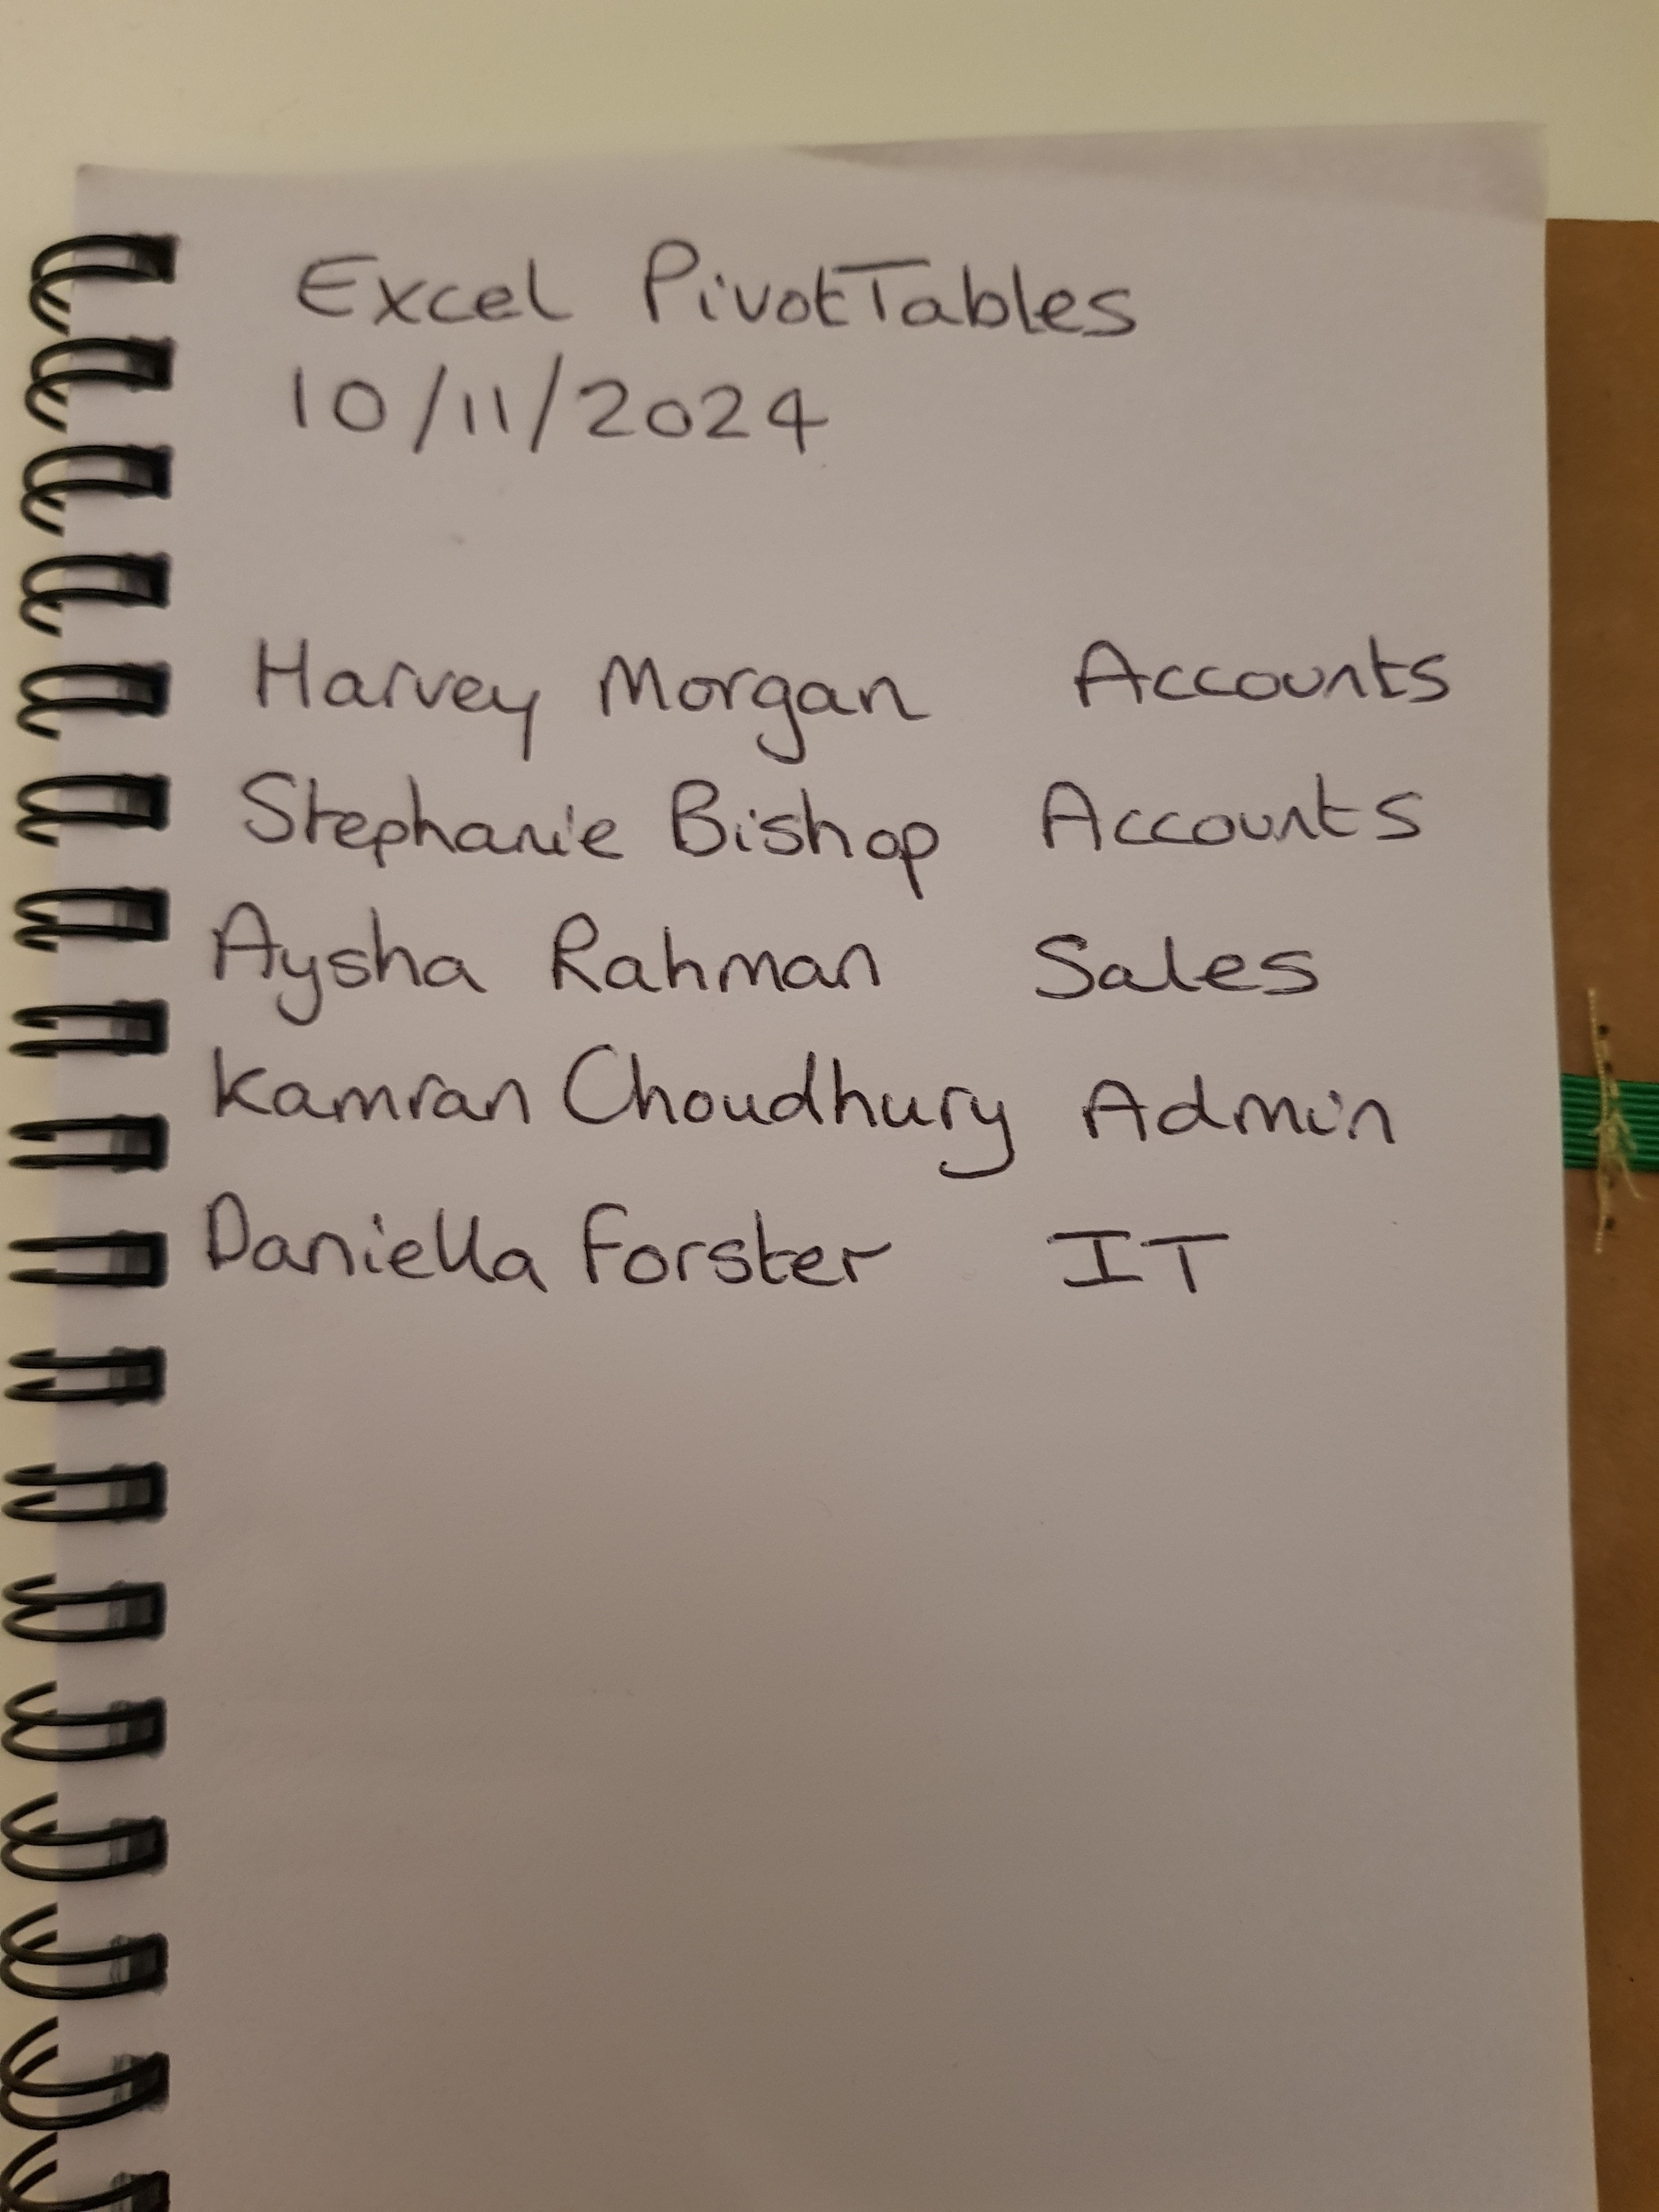 Excel PivotTables
10/11/2024
Harvey Morgan Accounts
Stephanie Bishop Accounts
Aysha Rahman Sales
Kamran Choudhury Admin
Daniella Forster IT